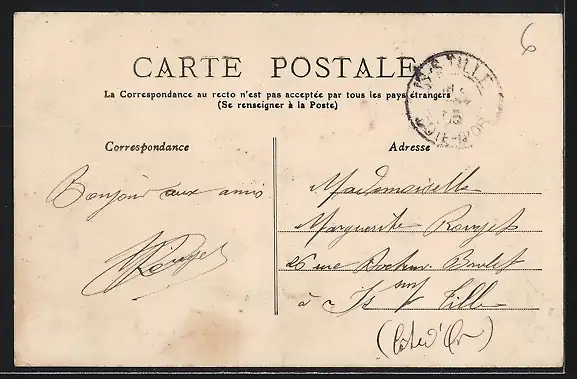 6
CARTE POSTALE
La Correspondance au recto n'est pas acceptée par tous les pays étrangers
(Se renseigner à la Poste)
IS-S-TILLE
Correspondance
Adresse
Bonjour aux amis
Rouget
Mademoiselle
Marguerite Rouget
26 rue
à Is sur Tille
(Côte d'Or)